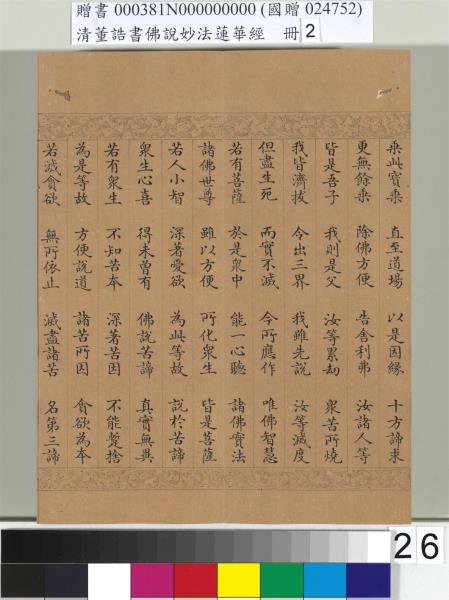 贈書 000381N000000000 (國贈 024752)
清董誥書佛說妙法蓮華經 冊 2
乘此寶乘 直至道場 以是因緣 十方諦求
更無餘乘 除佛方便 告舍利弗 汝諸人等
皆是吾子 我則是父 汝等累劫 衆苦所燒
我皆濟拔 令出三界 我雖先說 汝等滅度
但盡生死 而實不滅 今所應作 唯佛智慧
若有菩薩 於是衆中 能一心聽 諸佛實法
諸佛世尊 雖以方便 所化衆生 皆是菩薩
若人小智 深著愛欲 為此等故 說於苦諦
衆生心喜 得未曾有 佛說苦諦 真實無異
若有衆生 不知苦本 深著苦因 不能蹔捨
為是等故 方便說道 諸苦所因 貪欲為本
若滅貪欲 無所依止 滅盡諸苦 名第三諦
26